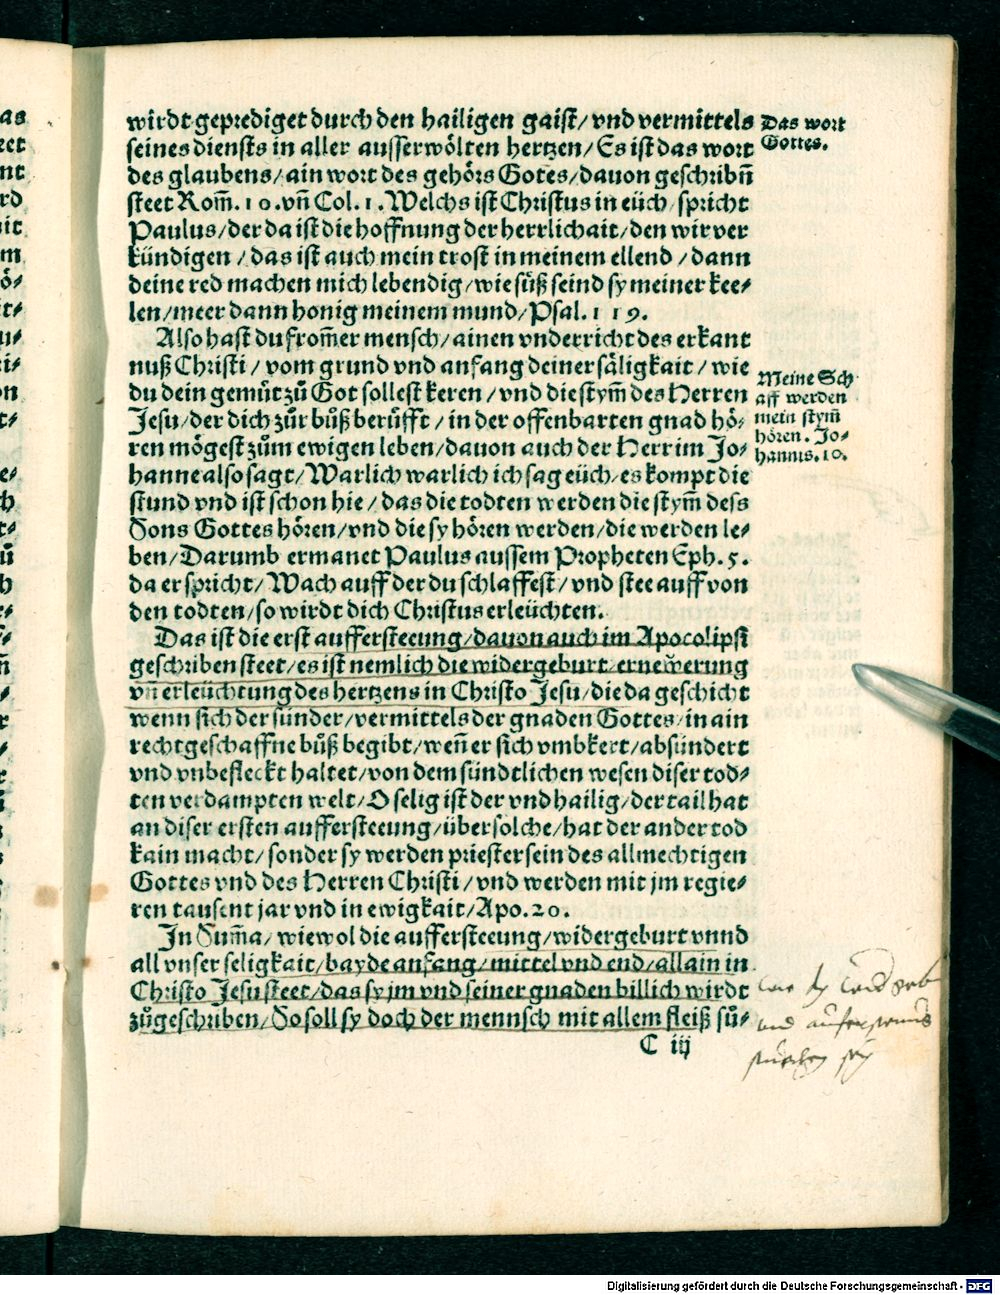 wirdt geprediget durch den hailigen gaist/ vnd vermittels
seines diensts in aller ausserwölten hertzen/ Es ist das wort
des glaubens/ ain wort des gehörs Gotes/ dauon geschribñ
steet Rom̃. 10. vñ Col. 1. Welchs ist Christus in eüch/ spricht
Paulus/ der da ist die hoffnung der herrlichait/ den wir ver
kündigen/ das ist auch mein trost in meinem ellend/ dann
deine red machen mich lebendig/ wie süß seind sy meiner kee-
len/ meer dann honig meinem mund/ Psal. 119.
Also hast du from̃er mensch/ ainen vnderricht des erkant
nuß Christi/ vom grund vnd anfang deiner säligkait/ wie
du dein gemüt zů Got sollest keren/ vnd die stym̃ des Herren
Jesu/ der dich zůr bůß berůfft/ in der offenbarten gnad hö-
ren mögest zům ewigen leben/ dauon auch der Herr im Jo-
hanne also sagt/ Warlich warlich ich sag eüch/ es kompt die
stund vnd ist schon hie/ das die todten werden die stym̃ dess
Sons Gottes hören/ vnd die sy hören werden/ die werden le-
ben/ Darumb ermanet Paulus aussem Propheten Eph. 5.
da er spricht/ Wach auff der du schlaffest/ vnd stee auff von
den todten/ so wirdt dich Christus erleüchten.
Das ist die erst auffersteeung/ dauon auch im Apocolipsi
geschriben steet/ es ist nemlich die widergeburt/ ernewerung
vñ erleüchtung des hertzens in Christo Jesu/ die da geschicht
wenn sich der sünder/ vermittels der gnaden Gottes/ in ain
rechtgeschaffne bůß begibt/ weñ er sich vmbkert/ absündert
vnd vnbefleckt haltet/ von dem sündtlichen wesen diser tod-
ten verdampten welt/ O selig ist der vnd hailig/ der tail hat
an diser ersten auffersteeung/ über solche/ hat der ander tod
kain macht/ sonder sy werden priester sein des allmechtigen
Gottes vnd des Herren Christi/ vnd werden mit jm regie-
ren tausent jar vnd in ewigkait/ Apo. 20.
In Sum̃a/ wiewol die auffersteeung/ widergeburt vnnd
all vnser seligkait/ bayde anfang/ mittel vnd end/ allain in
Christo Jesu steet/ das sy jm vnd seiner gnaden billich wirdt
zůgeschriben/ So soll sy doch der mennsch mit allem fleiß sů-
C iij
Das wort
Gottes.
Meine Sch
aff werden
mein stym̃
hören. Jo-
hannis. 10.
Digitalisierung gefördert durch die Deutsche Forschungsgemeinschaft - DFG